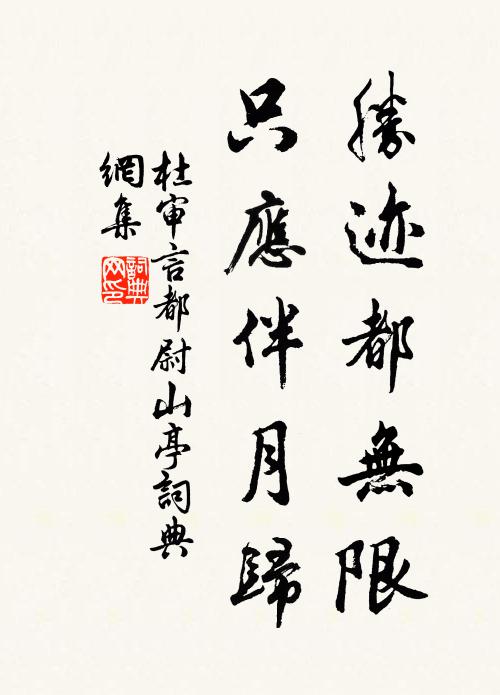 勝迹都無限
只應伴月歸
杜審言都尉山亭詞典
網集
詞典
网印